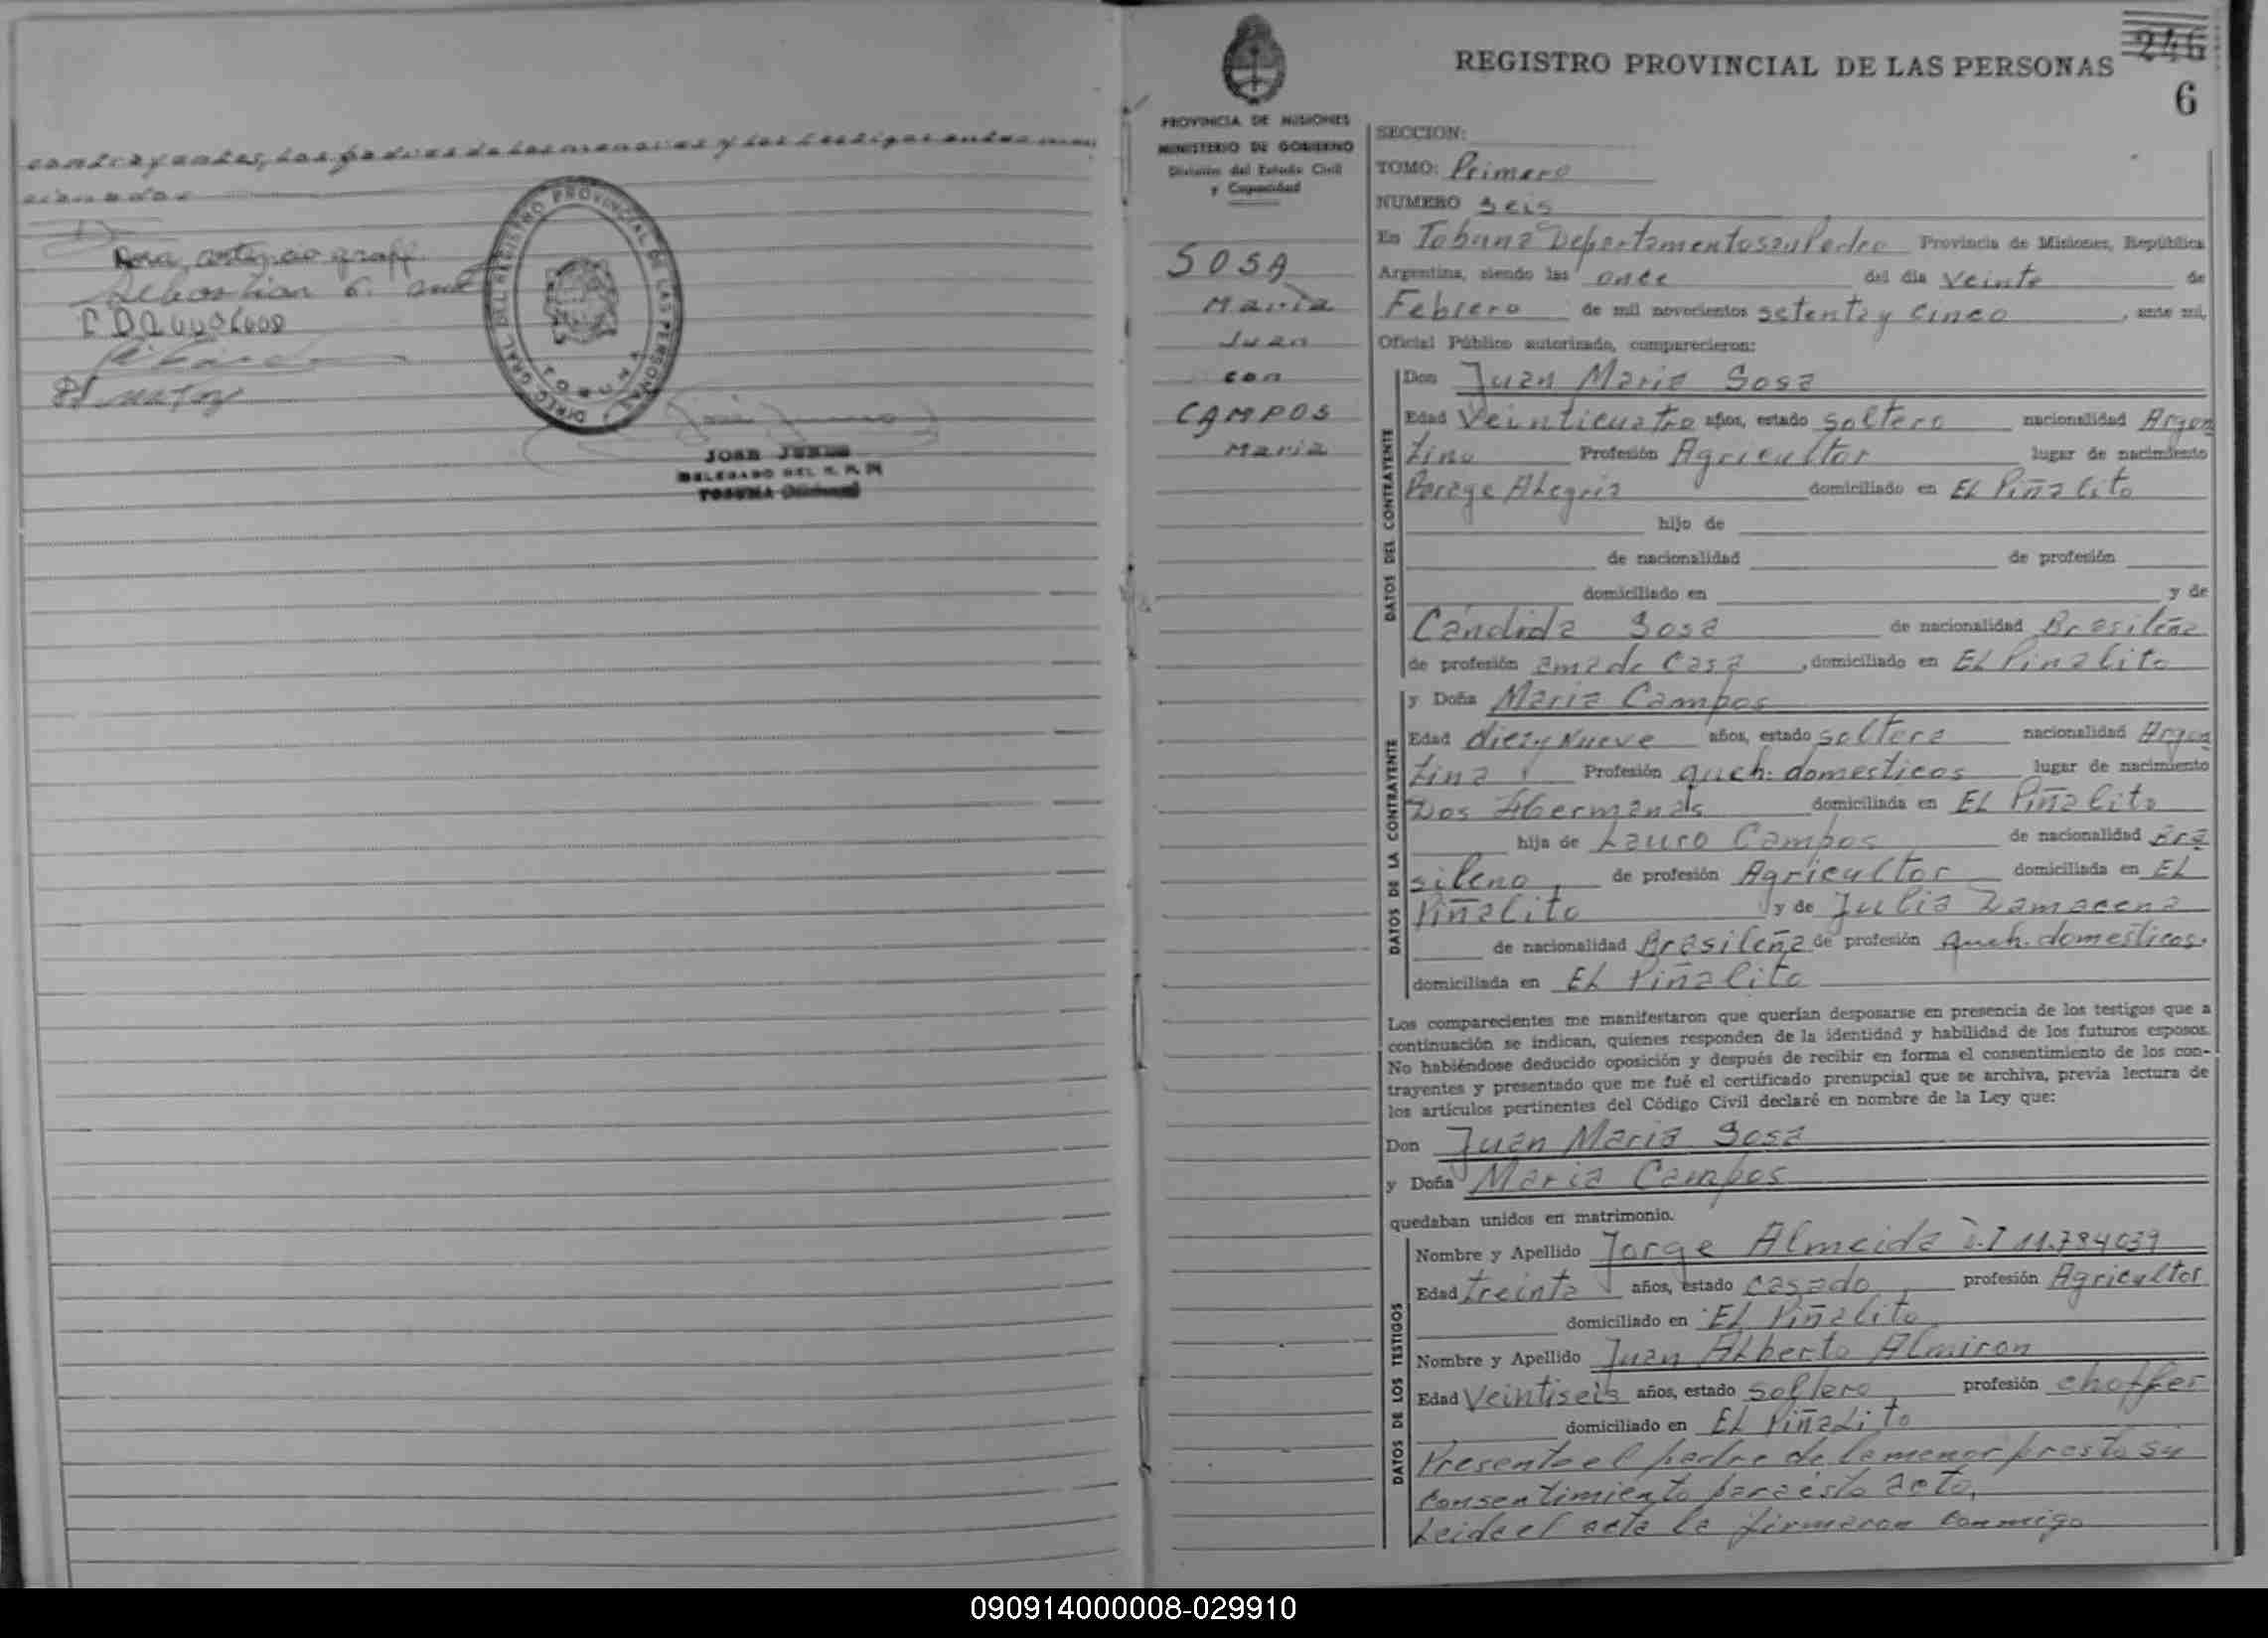 contrayentes, los padres de los menores y los testigos antes men
cionados
Rosa
Sebastian
DIREC. GRAL. DEL REGISTRO PROVINCIAL DE LAS PERSONAS
TOBUNA
JOSE
DELEGADO DEL R. P. P.
TOBUNA (Misiones)
246
REGISTRO PROVINCIAL DE LAS PERSONAS
6
PROVINCIA DE MISIONES
MINISTERIO DE GOBIERNO
División del Estado Civil
y Capacidad
SOSA
Maria
Juan
con
CAMPOS
Maria
SECCION:
TOMO: Primero
NUMERO Seis
En Tobuna Departamento San Pedro Provincia de Misiones, República
Argentina, siendo las once del día veinte de
Febrero de mil novecientos setenta y cinco, ante mi,
Oficial Público autorizado, comparecieron:
DATOS DEL CONTRAYENTE
Don Juan Maria Sosa
Edad Veinticuatro años, estado soltero nacionalidad Argen
tino Profesión Agricultor lugar de nacimiento
Paraje Alegria domiciliado en El Piñalito
hijo de
de nacionalidad de profesión
domiciliado en y de
Candida Sosa de nacionalidad Brasileña
de profesión ama de casa, domiciliado en El Piñalito
DATOS DE LA CONTRAYENTE
y Doña Maria Campos
Edad diez y Nueve años, estado soltera nacionalidad Argen
tina Profesión queh: domesticos lugar de nacimiento
Dos Hermanas domiciliada en El Piñalito
hija de Lauro Campos de nacionalidad Bra
sileno de profesión Agricultor domiciliada en El
Piñalito y de Julia Damacena
de nacionalidad Brasileña de profesión queh. domesticos.
domiciliada en El Piñalito
Los comparecientes me manifestaron que querían desposarse en presencia de los testigos que a
continuación se indican, quienes responden de la identidad y habilidad de los futuros esposos.
No habiéndose deducido oposición y después de recibir en forma el consentimiento de los con-
trayentes y presentado que me fué el certificado prenupcial que se archiva, previa lectura de
los artículos pertinentes del Código Civil declaré en nombre de la Ley que:
Don Juan Maria Sosa
y Doña Maria Campos
quedaban unidos en matrimonio.
DATOS DE LOS TESTIGOS
Nombre y Apellido Jorge Almeida D.I 11.784039
Edad treinta años, estado casado profesión Agricultor
domiciliado en El Piñalito
Nombre y Apellido Juan Alberto Almiron
Edad Veintiseis años, estado soltero profesión choffer
domiciliado en El Piñalito
Presente el padre de la menor presta su
consentimiento para esto acto,
Leida el acta la firmaron conmigo
090914000008-029910